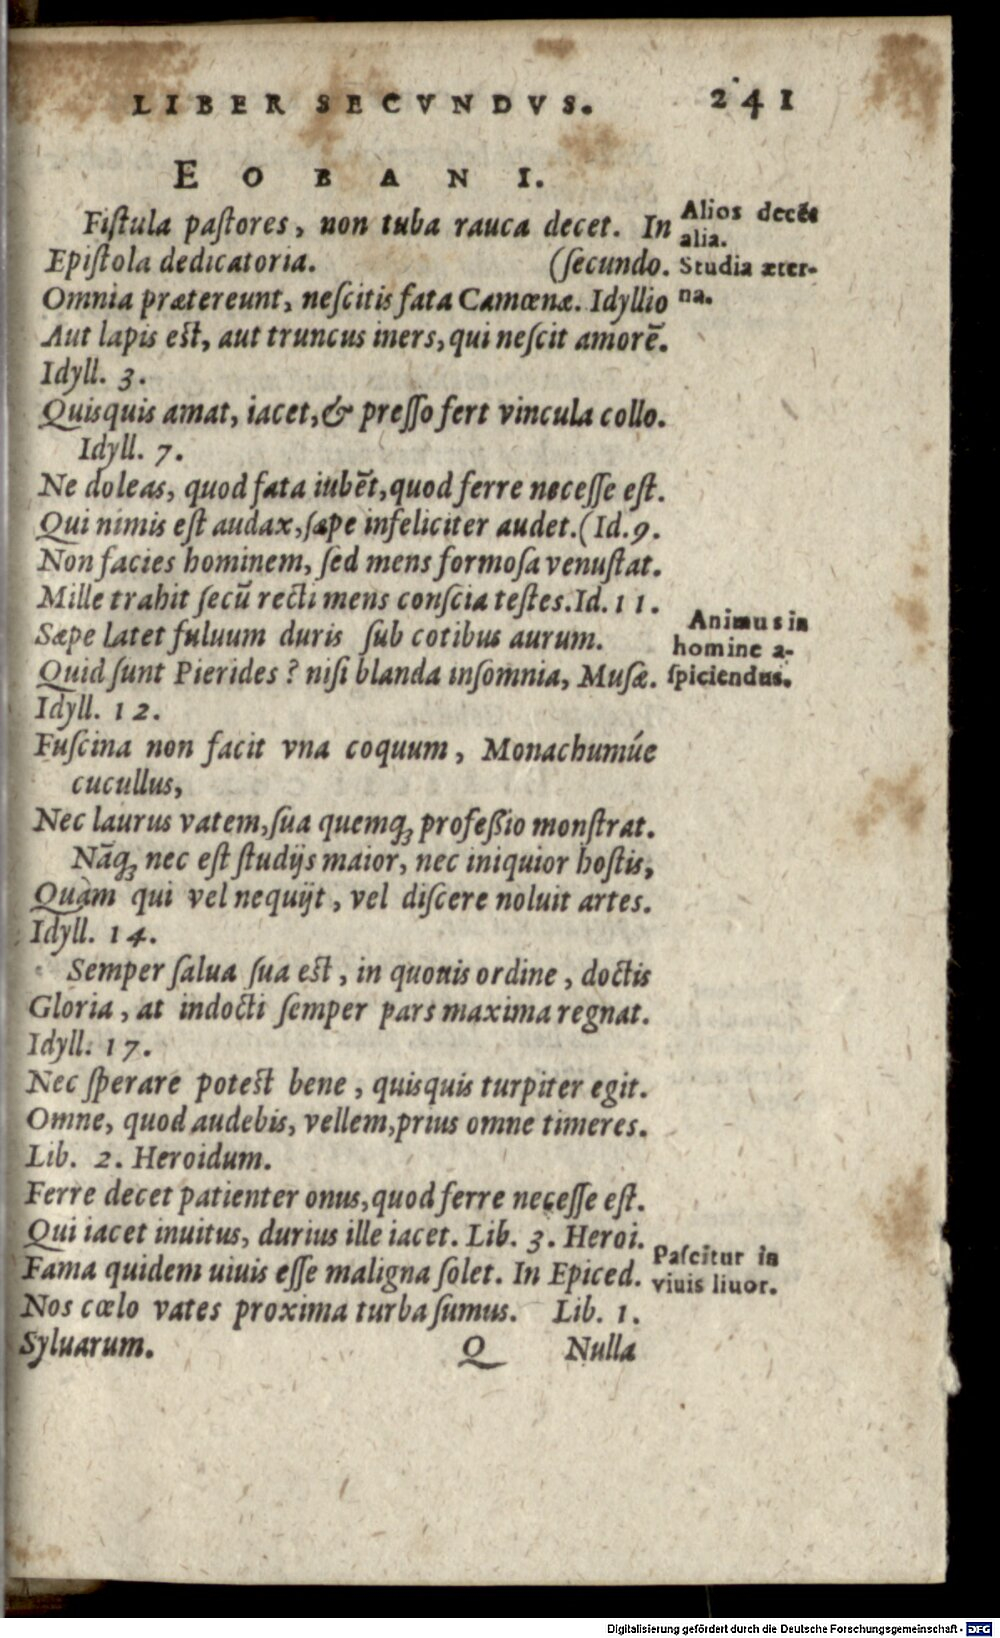 LIBER SECVNDVS. 241
EOBANI.
Fiſtula paſtores, non tuba rauca decet. In
Alios decēt
alia.
Epiſtola dedicatoria. (ſecundo.
Studia æter-
na.
Omnia prætereunt, neſcitis fata Camœnæ. Idyllio
Aut lapis eſt, aut truncus iners, qui neſcit amorē.
Idyll. 3.
Quisquis amat, iacet, & preſſo fert vincula collo.
Idyll. 7.
Ne doleas, quod fata iubēt, quod ferre neceſſe eſt.
Qui nimis eſt audax, ſæpe infeliciter audet. (Id. 9.
Non facies hominem, ſed mens formoſa venuſtat.
Mille trahit ſecū recti mens conſcia teſtes. Id. 11.
Sæpe latet fuluum duris ſub cotibus aurum.
Animus in
homine a-
ſpiciendus.
Quid ſunt Pierides? niſi blanda inſomnia, Muſæ.
Idyll. 12.
Fuſcina non facit vna coquum, Monachumúe
cucullus,
Nec laurus vatem, ſua quemq; profeßio monſtrat.
Nāq; nec eſt ſtudijs maior, nec iniquior hoſtis,
Quàm qui vel nequijt, vel diſcere noluit artes.
Idyll. 14.
Semper ſalua ſua eſt, in quouis ordine, doctis
Gloria, at indocti ſemper pars maxima regnat.
Idyll. 17.
Nec ſperare poteſt bene, quisquis turpiter egit.
Omne, quod audebis, vellem, prius omne timeres.
Lib. 2. Heroidum.
Ferre decet patienter onus, quod ferre neceſſe eſt.
Qui iacet inuitus, durius ille iacet. Lib. 3. Heroi.
Fama quidem uiuis eſſe maligna ſolet. In Epiced.
Paſcitur in
viuis liuor.
Nos cœlo vates proxima turba ſumus. Lib. 1.
Syluarum. Q Nulla
Digitalisierung gefördert durch die Deutsche Forschungsgemeinschaft - DFG